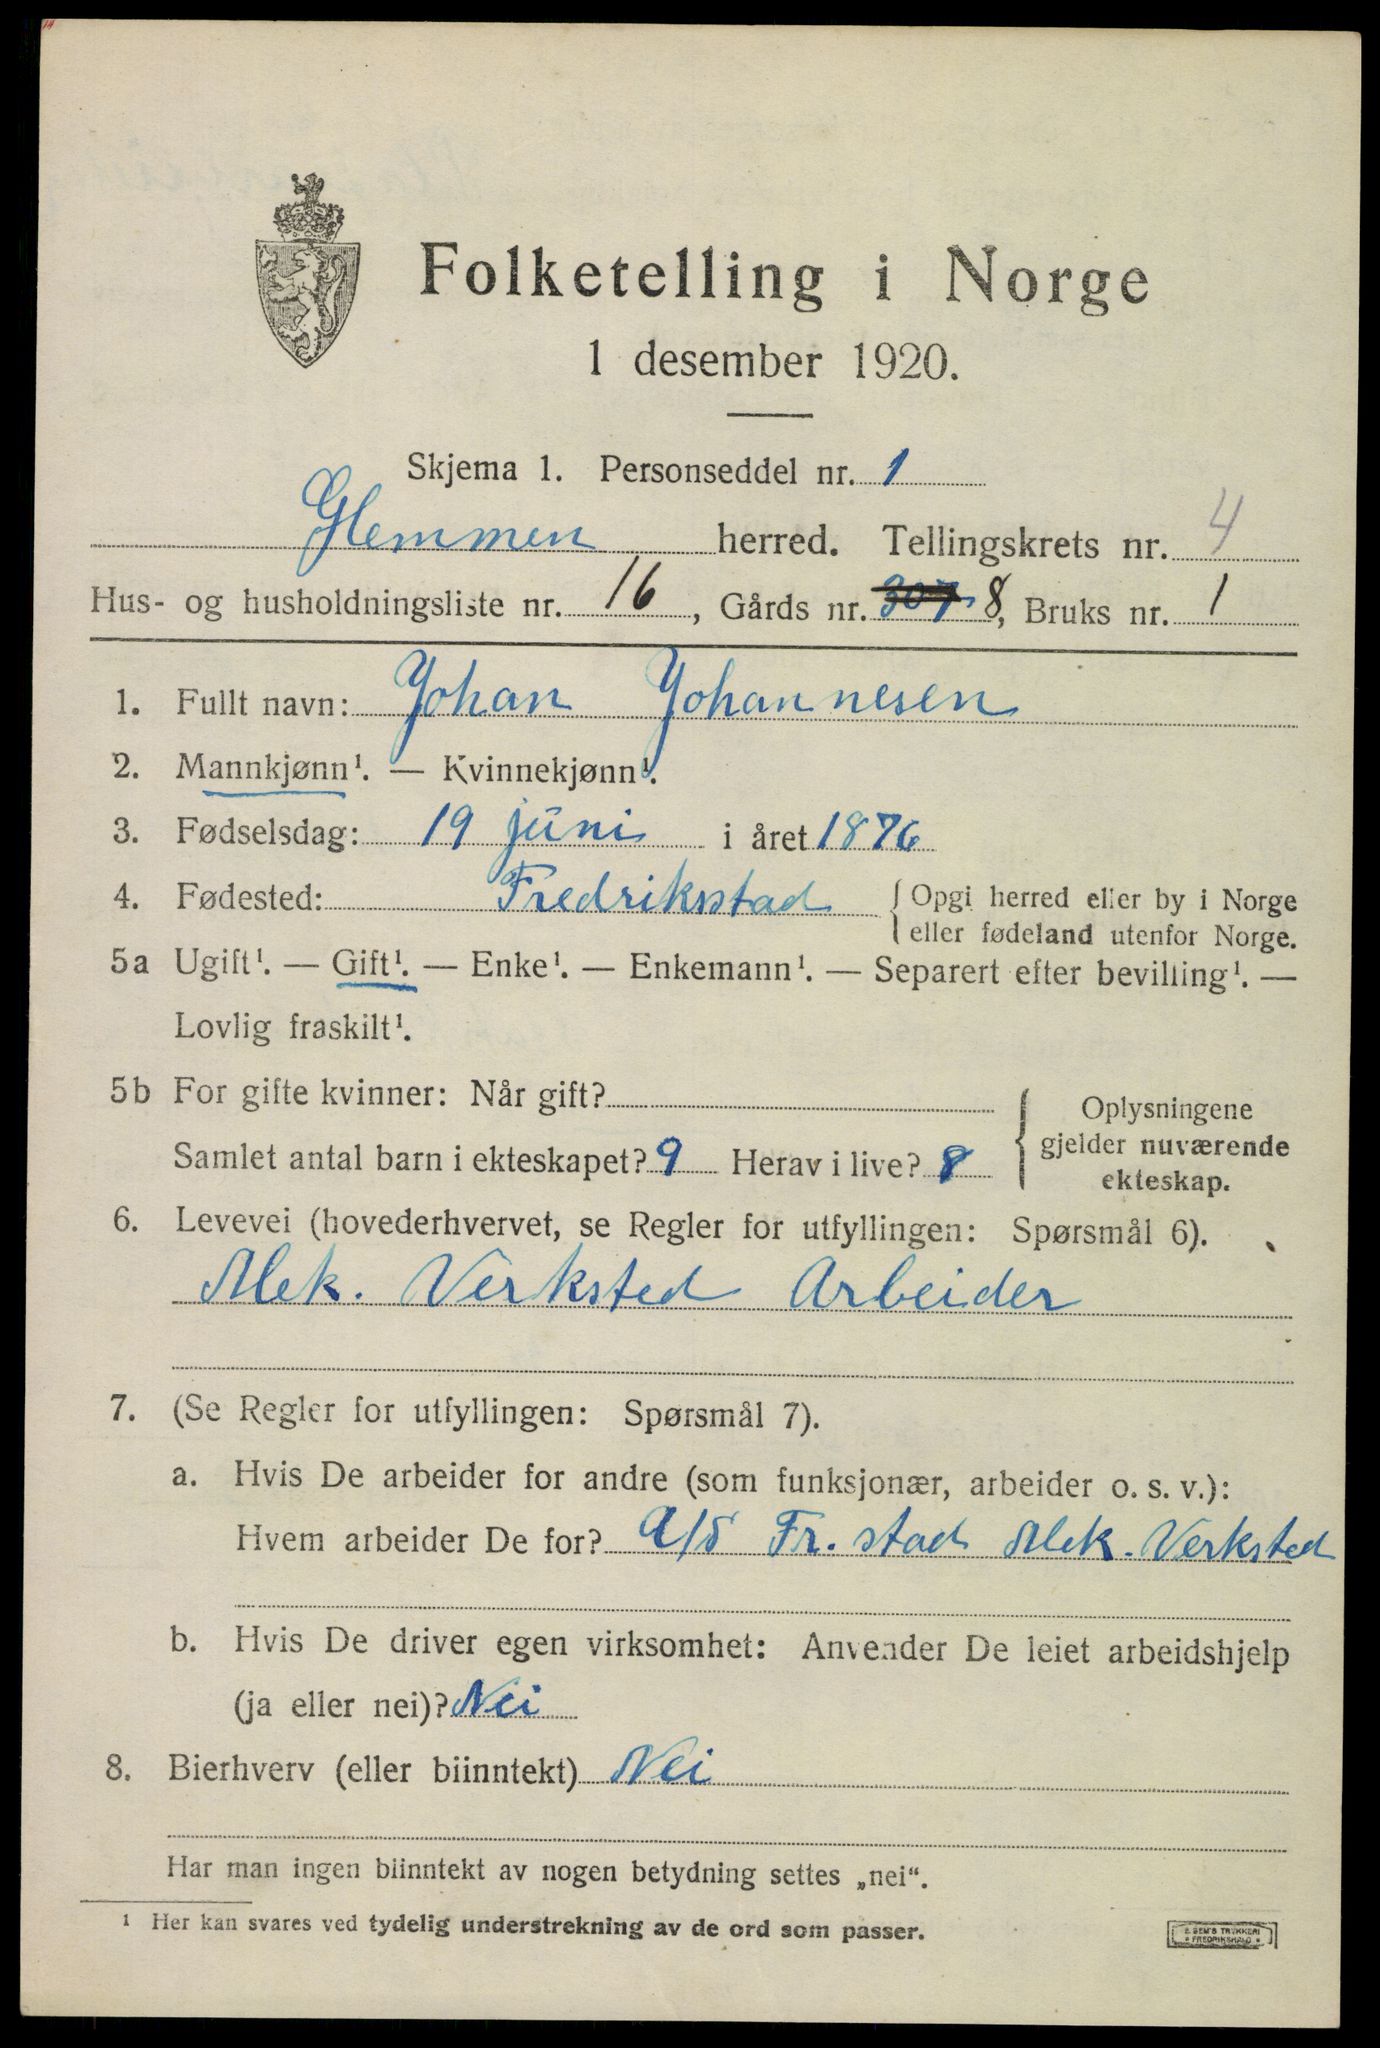 Folketelling i Norge
1 desember 1920.
Skjema 1. Personseddel nr. 1
Glemmen herred. Tellingskrets nr. 4
Hus- og husholdningsliste nr. 16, Gårds nr. 307 8, Bruks nr. 1
1. Fullt navn: Johan Johannesen
2. Mannkjønn¹. — Kvinnekjønn¹.
3. Fødselsdag: 19 juni i året 1876
4. Fødested: Fredriksstad { Opgi herred eller by i Norge
eller fødeland utenfor Norge.
5a Ugift¹. — Gift¹. — Enke¹. — Enkemann¹. — Separert efter bevilling¹. —
Lovlig fraskilt¹.
5b For gifte kvinner: Når gift?
Samlet antal barn i ekteskapet? 9 Herav i live? 8
{ Oplysningene
gjelder nuværende
ekteskap.
6. Levevei (hovederhvervet, se Regler for utfyllingen: Spørsmål 6).
Mek. Verksted Arbeider
7. (Se Regler for utfyllingen: Spørsmål 7).
a. Hvis De arbeider for andre (som funksjonær, arbeider o. s. v.):
Hvem arbeider De for? A/S Fr. stad Mek. Verksted
b. Hvis De driver egen virksomhet: Anvender De leiet arbeidshjelp
(ja eller nei)? Nei
8. Bierhverv (eller biinntekt) Nei
Har man ingen biinntekt av nogen betydning settes „nei“.
¹ Her kan svares ved tydelig understrekning av de ord som passer.
E. SEM'S TRYKKERI
FREDRIKSHALD